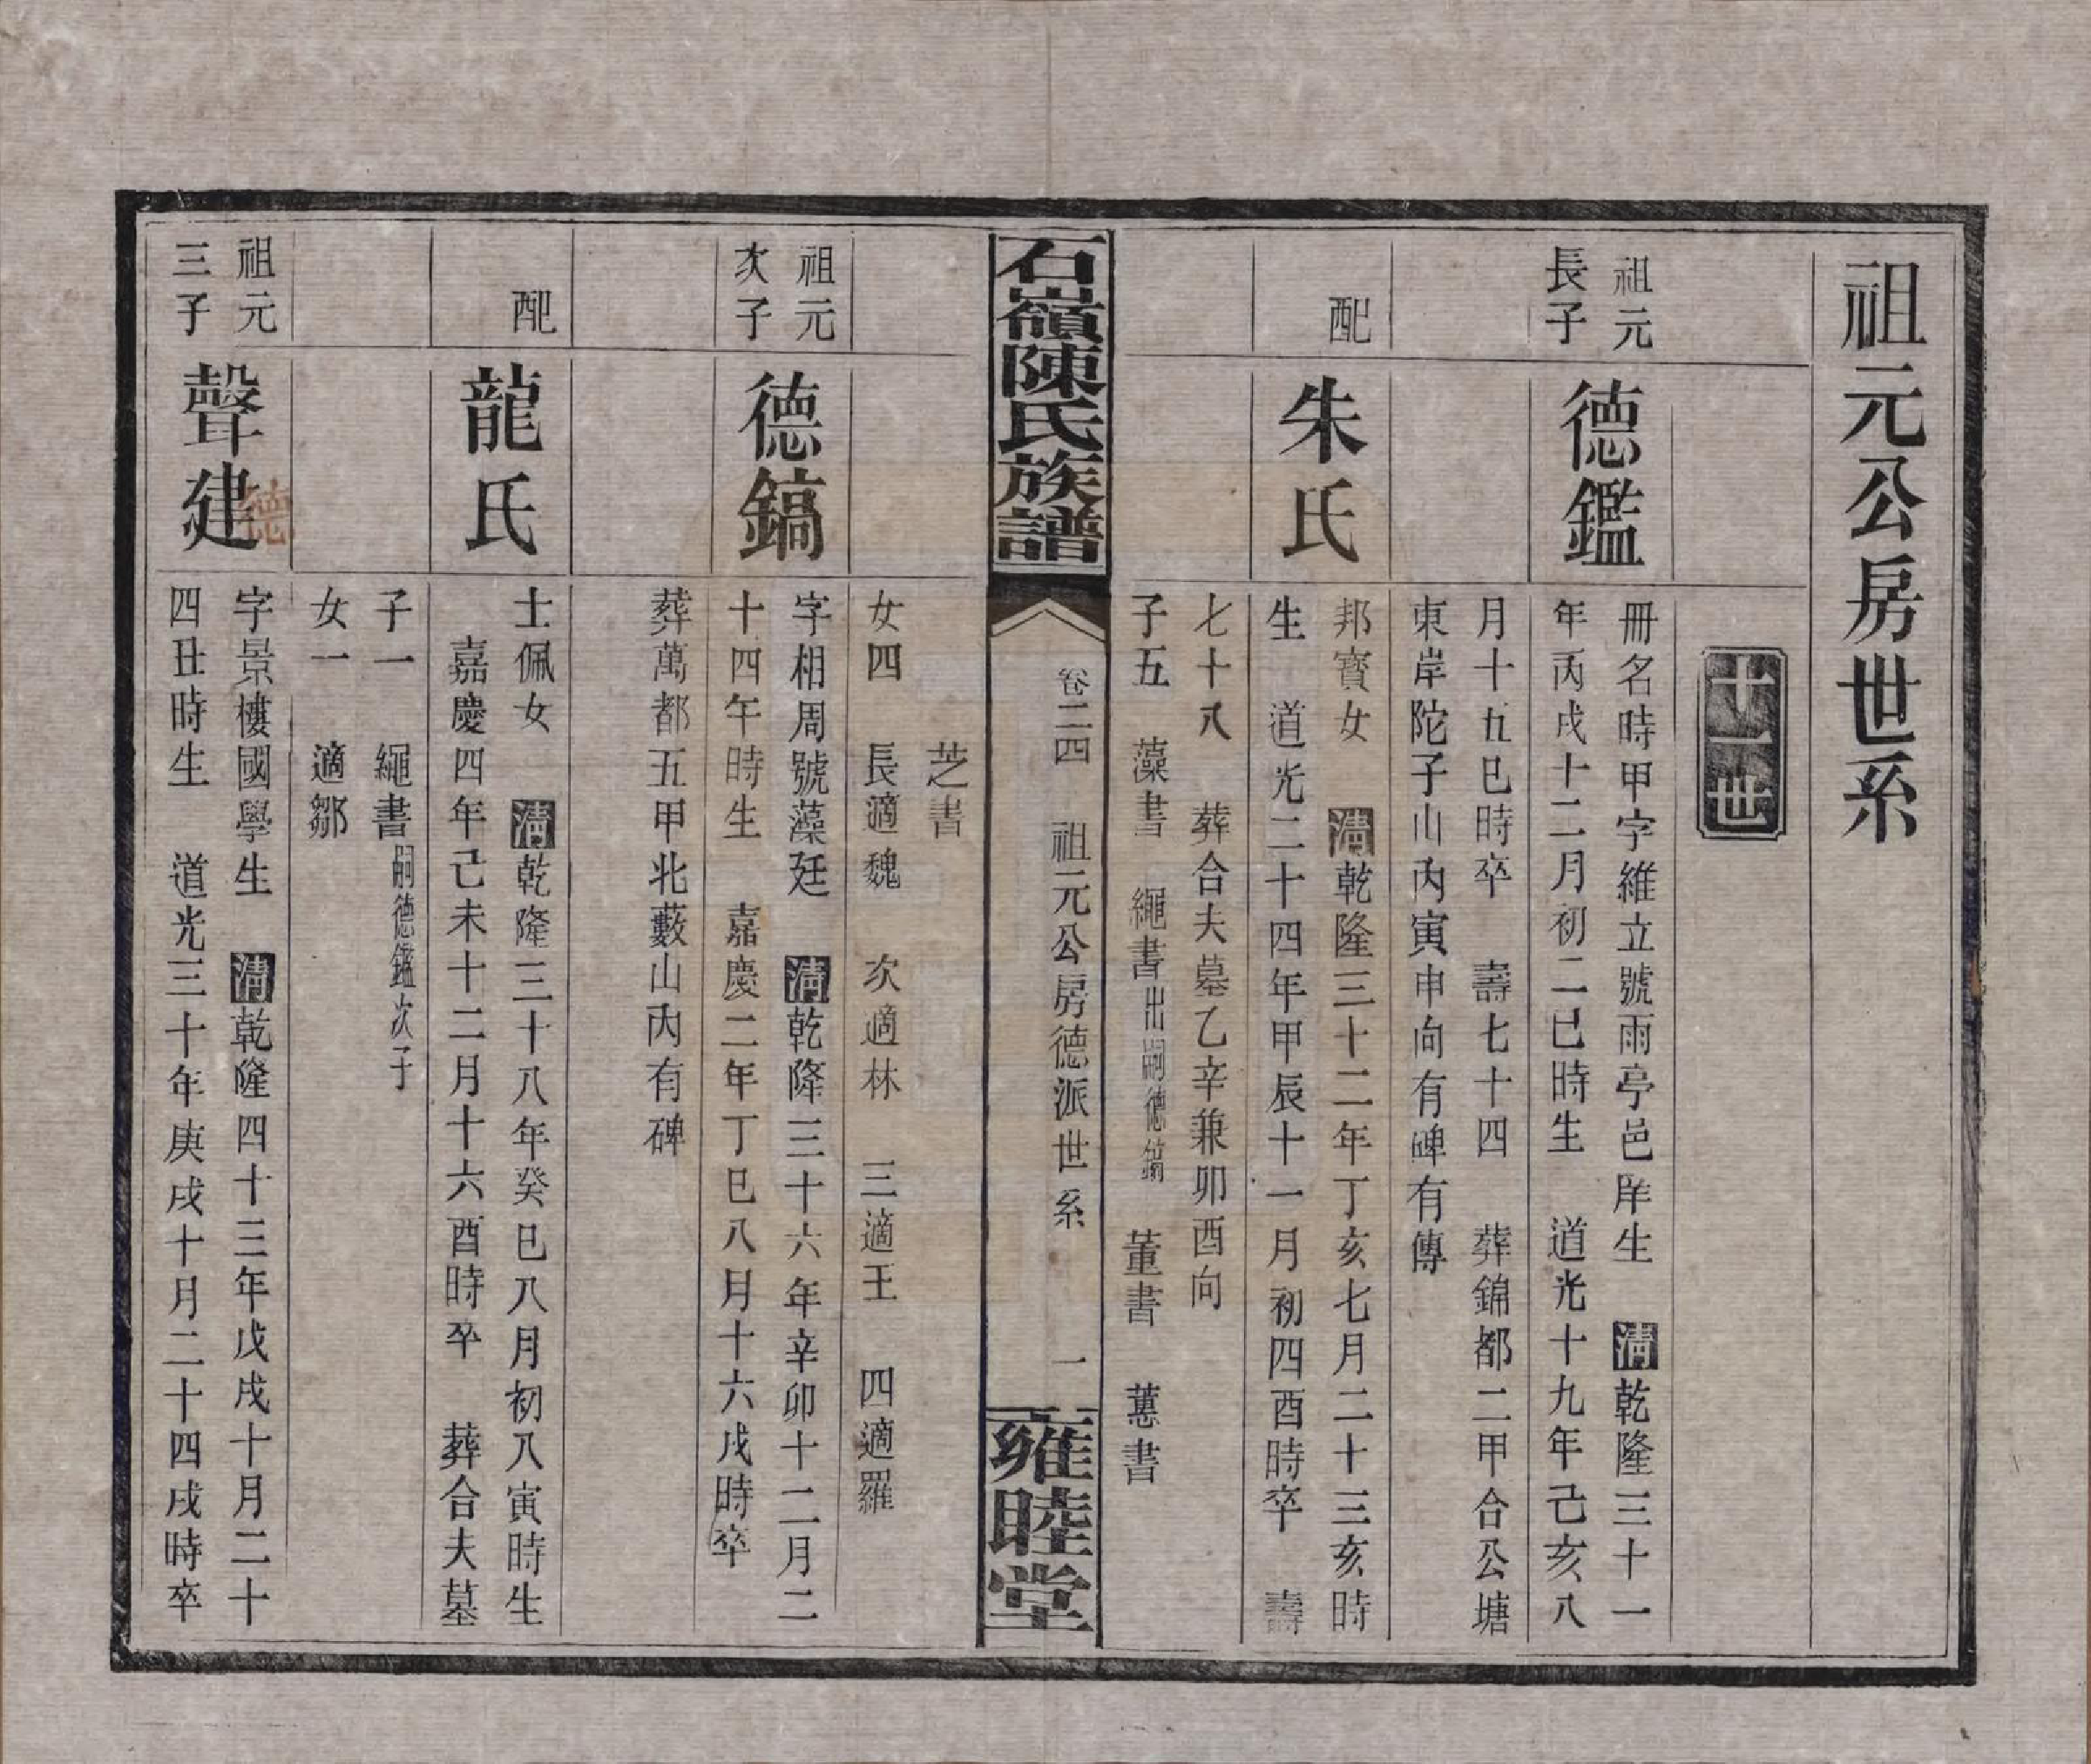 祖元公房世系
十一世
祖元
長子
德鑑
冊名時甲字維立號雨亭邑庠生 清乾隆三十一
年丙戌十二月初二巳時生 道光十九年己亥八
月十五巳時卒 壽七十四 葬錦都二甲合公塘
東岸陀子山內寅申向有碑有傳
配
朱氏
邦寶女 清乾隆三十二年丁亥七月二十三亥時
生 道光二十四年甲辰十一月初四酉時卒 壽
七十八 葬合夫墓乙辛兼卯酉向
子五 藻書 繩書出嗣德鎬 董書 蕙書
石嶺陳氏族譜
卷二四 祖元公房德派世系 一
雍睦堂
芝書
女四 長適魏 次適林 三適王 四適羅
祖元
次子
德鎬
字相周號藻廷 清乾隆三十六年辛卯十二月二
十四午時生 嘉慶二年丁巳八月十六戌時卒
葬萬都五甲北藪山內有碑
配
龍氏
士佩女 清乾隆三十八年癸巳八月初八寅時生
嘉慶四年己未十二月十六酉時卒 葬合夫墓
子一 繩書嗣德鑑次子
女一 適鄒
祖元
三子
聲建
德
字景樓國學生 清乾隆四十三年戊戌十月二十
四丑時生 道光三十年庚戌十月二十四戌時卒